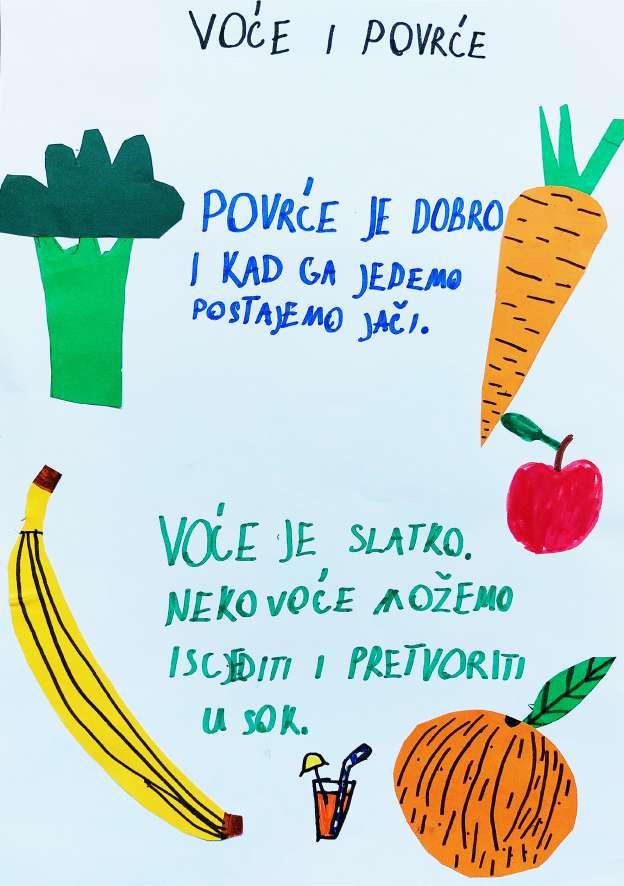 VOĆE I POVRĆE
POVRĆE JE DOBRO
I KAD GA JEDEMO
POSTAJEMO JAČI.
VOĆE JE SLATKO.
NEKO VOĆE MOŽEMO
ISCJEDITI I PRETVORITI
U SOK.